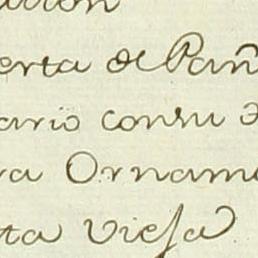 erta de Pañ
ario con su
ra Ornam
ta vieja